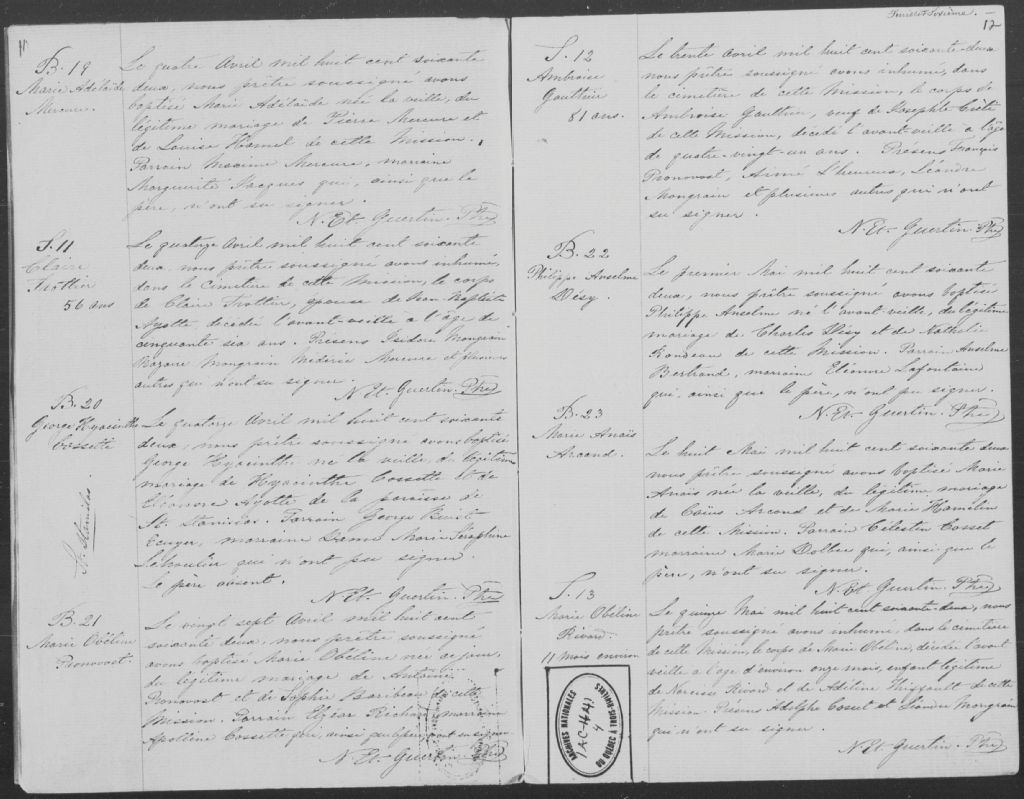 11
B. 19
Marie Adélaïde
Mercure.
Le quatre Avril mil huit cent soixante
deux, nous prêtre soussigné avons
baptisé Marie Adélaïde née la veille, du
légitime mariage de Pierre Mercure et
de Louise Hamel de cette Mission.
Parrain Maxime Mercure, marraine
Marguerite Jacques qui, ainsi que le
père, n'ont su signer.
N. Et. Guertin. Ptre
S. 11
Claire
Trottier
56 ans
Le quatorze Avril mil huit cent soixante
deux, nous prêtre soussigné avons inhumé,
dans le Cimetière de cette Mission, le corps
de Claire Trottier, épouse de Jean-Baptiste
Ayotte, décédée l'avant-veille a l'âge de
cinquante six ans. Présens Isidore Mongrain
Nazaire Mongrain Médéric Mercure et plusieurs
autres qui n'ont su signer.
N. Et. Guertin. Ptre
B. 20
George Hyacinthe
Cossette
St. Stanislas.
Le quatorze Avril mil huit cent soixante
deux, nous prêtre soussigné avons baptisé
George Hyacinthe né la veille, du légitime
mariage de Hyacinthe Cossette et de
Eléonore Ayotte de la paroisse de
St. Stanislas. Parrain George
Ecuyer, marraine Dame Marie Séraphine
qui n'ont pu signer.
Le père absent.
N. Et. Guertin. Ptre
B. 21
Marie Obéline
Pronovost.
Le vingt sept Avril mil huit cent
soixante deux, nous prêtre soussigné
avons baptisé Marie Obéline née ce jour,
du légitime mariage de Antoine
Pronovost et de Sophie Baribeau de cette
Mission. Parrain Elzéar Richard, marraine
Apolline Cossette qui, ainsi que le père, n'ont su signer.
N. Et. Guertin. Ptre
Feuillet Sixième.
12
S. 12
Ambroise
Gauthier
81 ans.
Le trente avril mil huit cent soixante-deux
nous prêtre soussigné avons inhumé, dans
le cimetière de cette Mission, le corps de
Ambroise Gauthier, veuf de Josephte Crête
de cette Mission, décédé l'avant-veille a l'âge
de quatre-vingt-un ans. Présens François
Pronovost, Aimé L'heureux, Léandre
Mongrain et plusieurs autres qui n'ont
su signer.
N. Et. Guertin. Ptre
B. 22
Philippe Anselme
Désy.
Le premier Mai mil huit cent soixante
deux, nous prêtre soussigné avons baptisé
Philippe Anselme né l'avant-veille, du légitime
mariage de Charles Désy et de Nathalie
Rondeau de cette Mission. Parrain Anselme
Bertrand, marraine Eléonne Lafontaine
qui, ainsi que le père, n'ont pu signer.
N. Et. Guertin. Ptre
B. 23
Marie Anaïs
Arcand.
Le huit Mai mil huit cent soixante deux
nous prêtre soussigné avons baptisé Marie
Anaïs née la veille, du légitime mariage
de Caïus Arcand et de Marie Hamelin
de cette Mission. Parrain Célestin Cosset
marraine Marie Dolbec qui, ainsi que le
père, n'ont su signer.
N. Et. Guertin. Ptre
S. 13
Marie Obéline
Rivard.
11 mois environ
Le quinze Mai mil huit cent soixante-deux, nous
prêtre soussigné avons inhumé, dans le cimetière
de cette Mission, le corps de Marie Obéline, décédée l'avant
veille a l'âge d'environ onze mois, enfant légitime
de Narcisse Rivard et de Adéline Thiffault de cette
Mission. Présens Adolphe Cosset et Léandre Mongrain
qui n'ont su signer.
N. Et. Guertin. Ptre
ARCHIVES NATIONALES
DU QUÉBEC À TROIS-RIVIÈRES